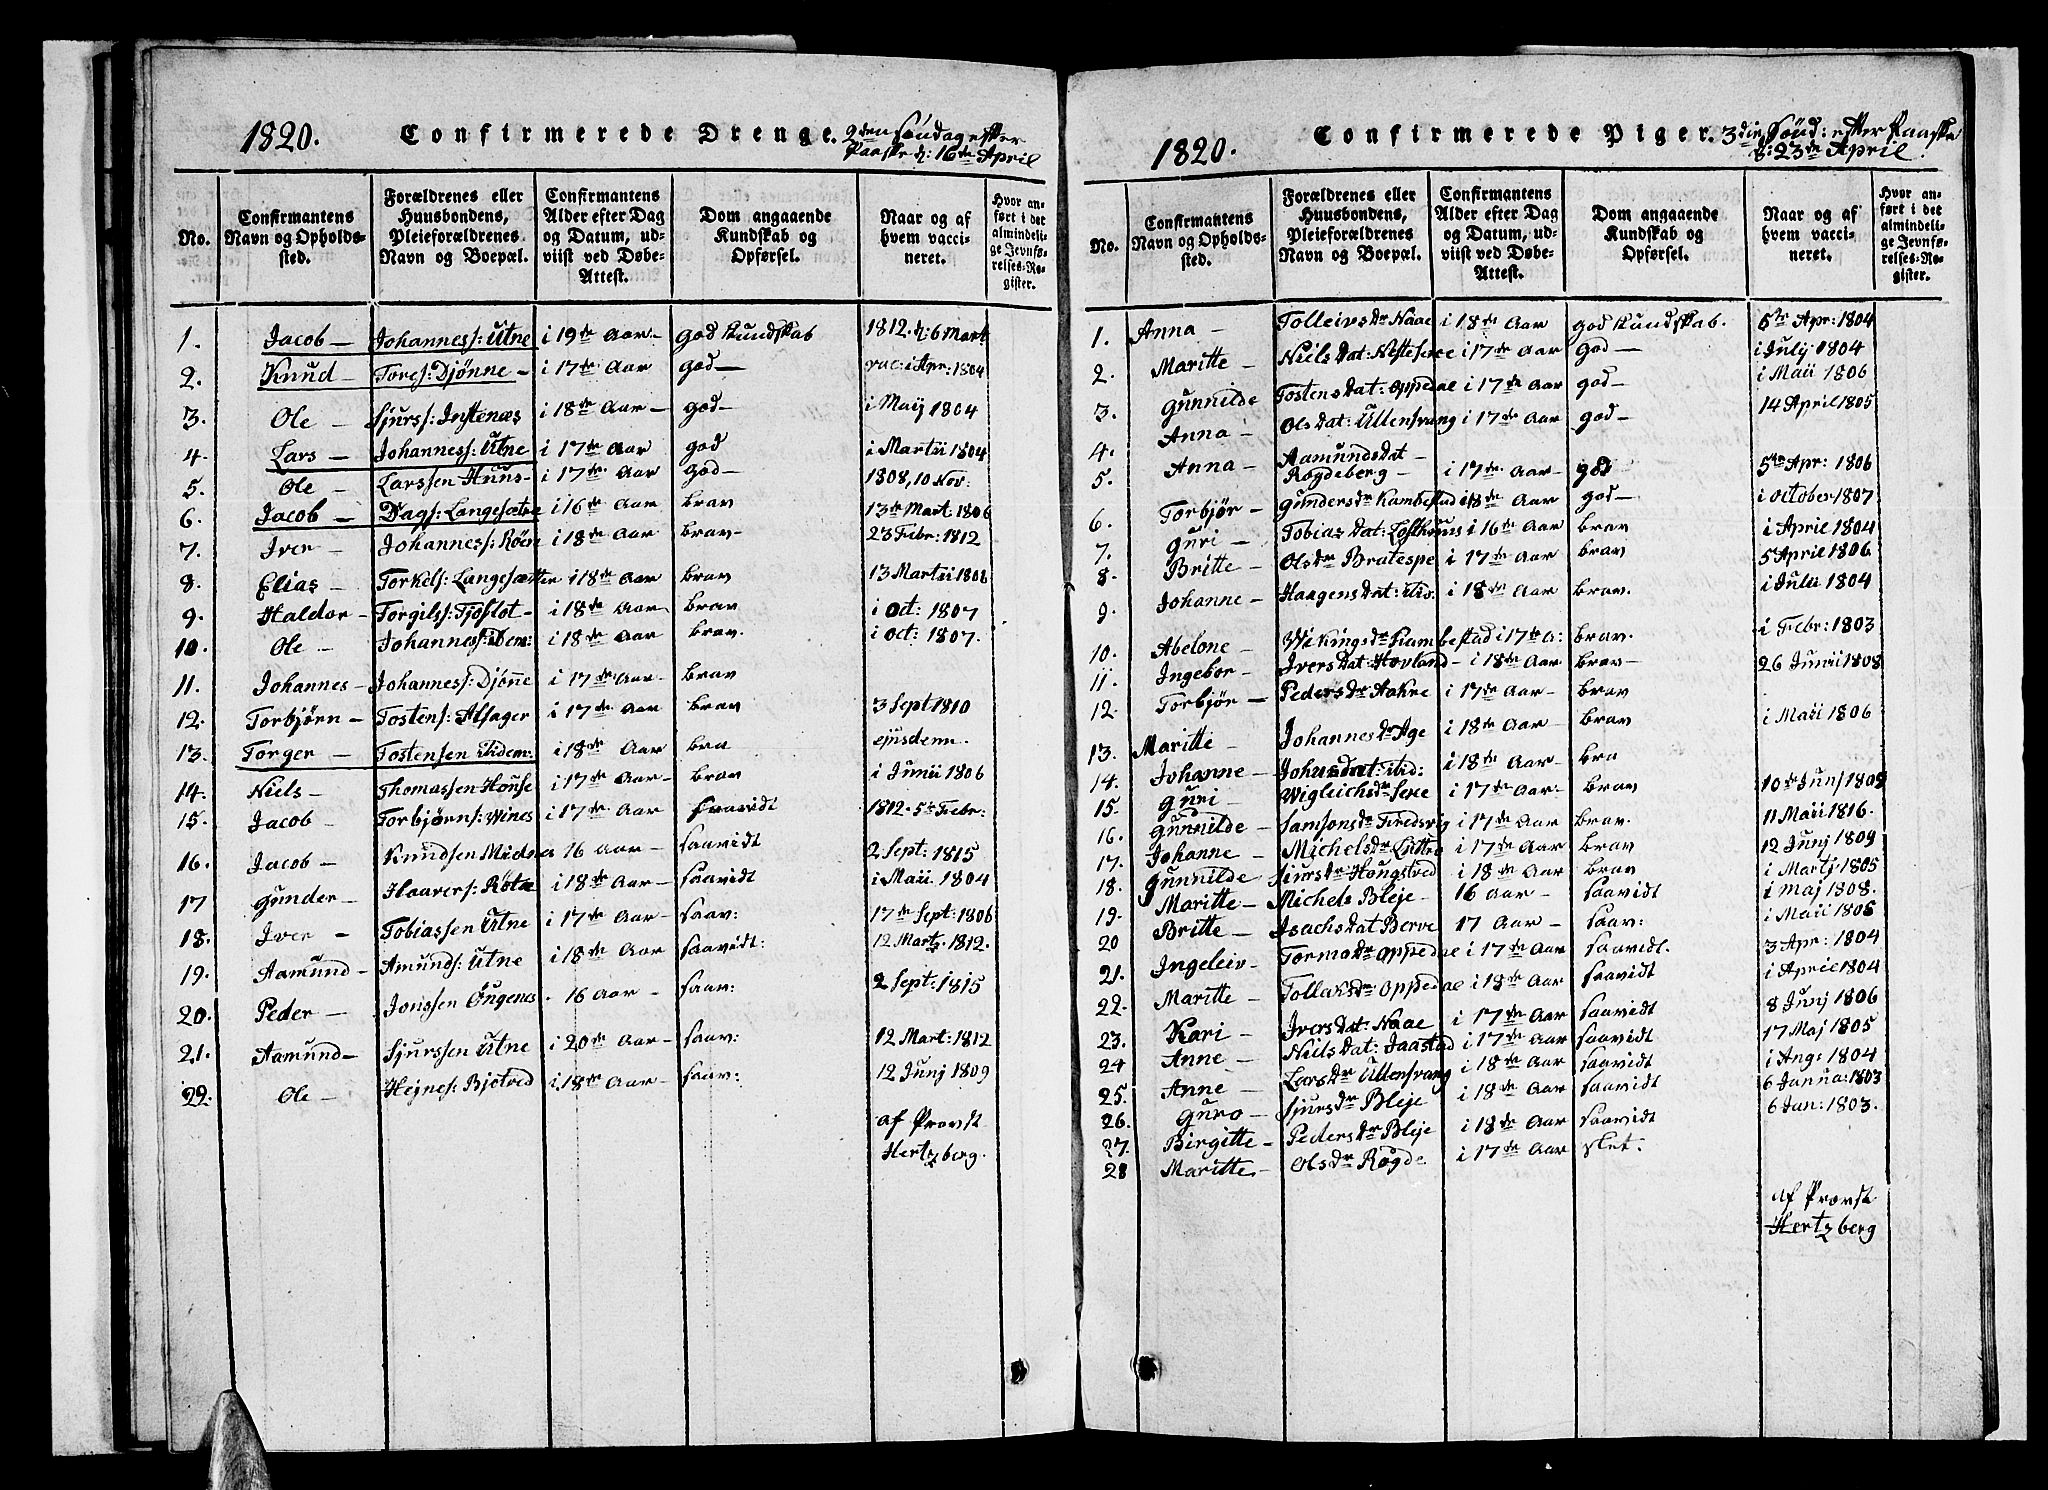 1820. Confirmerede Drenge. 2den Søndag efter
Paaske d: 16de April
No.
Confirmantens
Navn og Opholds-
sted.
Forældrenes eller
Huusbondens,
Pleieforældrenes
Navn og Boepæl.
Confirmantens
Alder efter Dag
og Datum, ud-
viist ved Døbe-
Attest.
Dom angaaende
Kundskab og
Opførsel.
Naar og af
hvem vacci-
neret.
Hvor an-
ført i det
almindeli-
ge Jevnfø-
relses-Re-
gister.
1. Jacob — Johanness: Utne i 19de Aar — god Kundskab 1812. d: 6 Mart
2. Knud — Tores: Djønne — i 17de Aar god — vac: i Apr: 1804
3. Ole — Sjurss: Jestenæs i 18de Aar — god — i Maij 1804
4. Lars — Johanness: Utne i 17de Aar god i Martii 1804
5. Ole — Larssen Huus- i 17de Aar god — 1808, 10 Nov:
6. Jacob — Dags: Langesætre i 16de Aar brav 13de Mart: 1806
7. Iver — Johanness: Røen i 18de Aar brav — 23 Febr: 1812
8. Elias — Torkels: Langesætter i 18de Aar brav 13 Martii 1806
9. Haldor — Torgils: Tjoflot — i 18de Aar brav i Oct: 1807
10. Ole — Johanness: ibem: i 18de Aar brav. i Oct: 1807.
11. Johannes — Johanness: Djønne i 17de Aar — brav
12. Torbjørn — Tostens: Alsager i 17de Aar brav 3 Sept 1810
13. Torger — Tostensen Itidem: i 18de Aar bra ejusdem.
14. Niels — Thomassen House i 17de Aar — brav i Junii 1806
15. Jacob — Torbjørns: Wines i 17de Aar saavidt 1812. 5te Febr:
16. Jacob — Knudsen Midnes 16 Aar — saavidt 2 Sept: 1815
17 Gunder — Haavers: Røtæ i 18de Aar — saavidt i Maii 1804
18. Iver — Tobiassen Utne i 17de Aar — saav: 17de Sept: 1806
19. Aamund — Amunds: Utne i 18de Aar saavidt: 12 Marts 1812.
20. Peder — Jonssen Ongenes. 16 Aar — saav: 2 Sept: 1815
21. Aamund — Sjurssen Utne i 20de Aar — saav: 12 Mart: 1812
22. Ole — Hejnes: Bjotved i 18de Aar — saav: 12 Junj 1809
af Provst
Hertzberg.
1820. Confirmerede Piger. 3die Sønd: efter Paaske
d: 23de April.
No.
Confirmantens
Navn og Opholds-
sted.
Forældrenes eller
Huusbondens,
Pleieforældrenes
Navn og Boepæl.
Confirmantens
Alder efter Dag
og Datum, ud-
viist ved Døbe-
Attest.
Dom angaaende
Kundskab og
Opførsel.
Naar og af
hvem vacci-
neret.
Hvor an-
ført i det
almindeli-
ge Jevnfø-
relses-Re-
gister.
1. Anna — Tolleivsdr Naae i 18de Aar god Kundskab. 5te Apr: 1804
2. Maritte — Niels Dat: i 17de Aar god — i Julij 1804
3. Gunnilde Tostens Dat: Oppedal i 17de Aar god — i Maii 1806
4. Anna — Ols Dat: Ullensvang i 17de Aar god — 14 April 1805
5. Anna — Aamundsdat —
Rogdeberg — i 17de Aar god 5te Apr: 1806
6. Torbjør — Gundersdr Kambestad i 18de Aar god — i October 1807
7. Guri — Tobias Dat: Lofthuus i 16de Aar brav i April 1804
8. Britte — Olsdr Bratespe i 17de Aar brav 5 April 1806
9. Johanne — Haagens Dat: itid. i 18de Aar brav. i Julii 1804
10. Abelone — Wikingsdr Kambestad i 17de A: brav. i Febr: 1803
11. Ingebor — Ivers Dat: Hovland — i 18de Aar brav — 26 Junii 1808
12. Torbjør — Pedersdr Aakre i 17de Aar — brav
13. Maritte — Johannesdr Age i 18de Aar — brav i Maii 1806
14. Johanne — i 18de Aar — bra
15. Guri — Wigleichsdr Sexe i 17de Aar — brav 10de Junj 1809
16. Gunnilde — Samsonsdr i 17de Aar brav. 11 Maii 1816.
17. Johanne — Michelsdr Luttro i 17de Aar — brav 12 Junj 1809
18. Gunnilde Siursdr Hougstvd i 18de Aar brav i Martj 1805
19. Maritte — Michels Bleje — 16 Aar — saavidt i Maj 1808.
20 Britte — Isachs Dat Berve 17 Aar — saav: i Maii 1805
21. Ingeleiv — Tormodr Oppedal i 17de Aar saavidt. 3 Apr: 1804
22. Maritte — Tollaksdr Oppedal i 18de Aar saavidt i April 1804
23. Kari — Ivers Dat: Naae i 17de Aar saavidt 8 Junj 1806
24 Anne — Niels Dat: Jaastad i 17de Aar saavidt 17 Maj 1805
25. Anne — Larsdr Ullensvang i 18de Aar saavidt i Aug: 1804
26. Guro — Sjursdr Bleje i 18de Aar saavidt 6 Janua: 1803
27. Birgitte — Pedersdr Bleje i 18de Aar saavidt 6 Jan: 1803.
28 Maritte — Olsdr Røgde i 17de Aar slet.
af Provst
Hertzberg